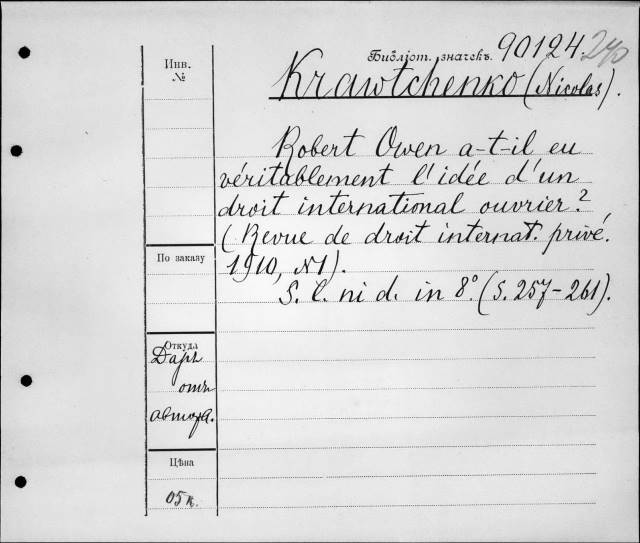 Библіот. значекъ. 90124. 240
Инв. №
Krawtchenko (Nicolas).
Robert Owen a-t-il eu
véritablement l'idée d'un
droit international ouvrier?
(Revue de droit internat. privé.
1910, №1).
S. l. ni d. in 8° (S. 257-261).
По заказу
Откуда
Даръ
отъ
автора.
Цѣна
05 к.